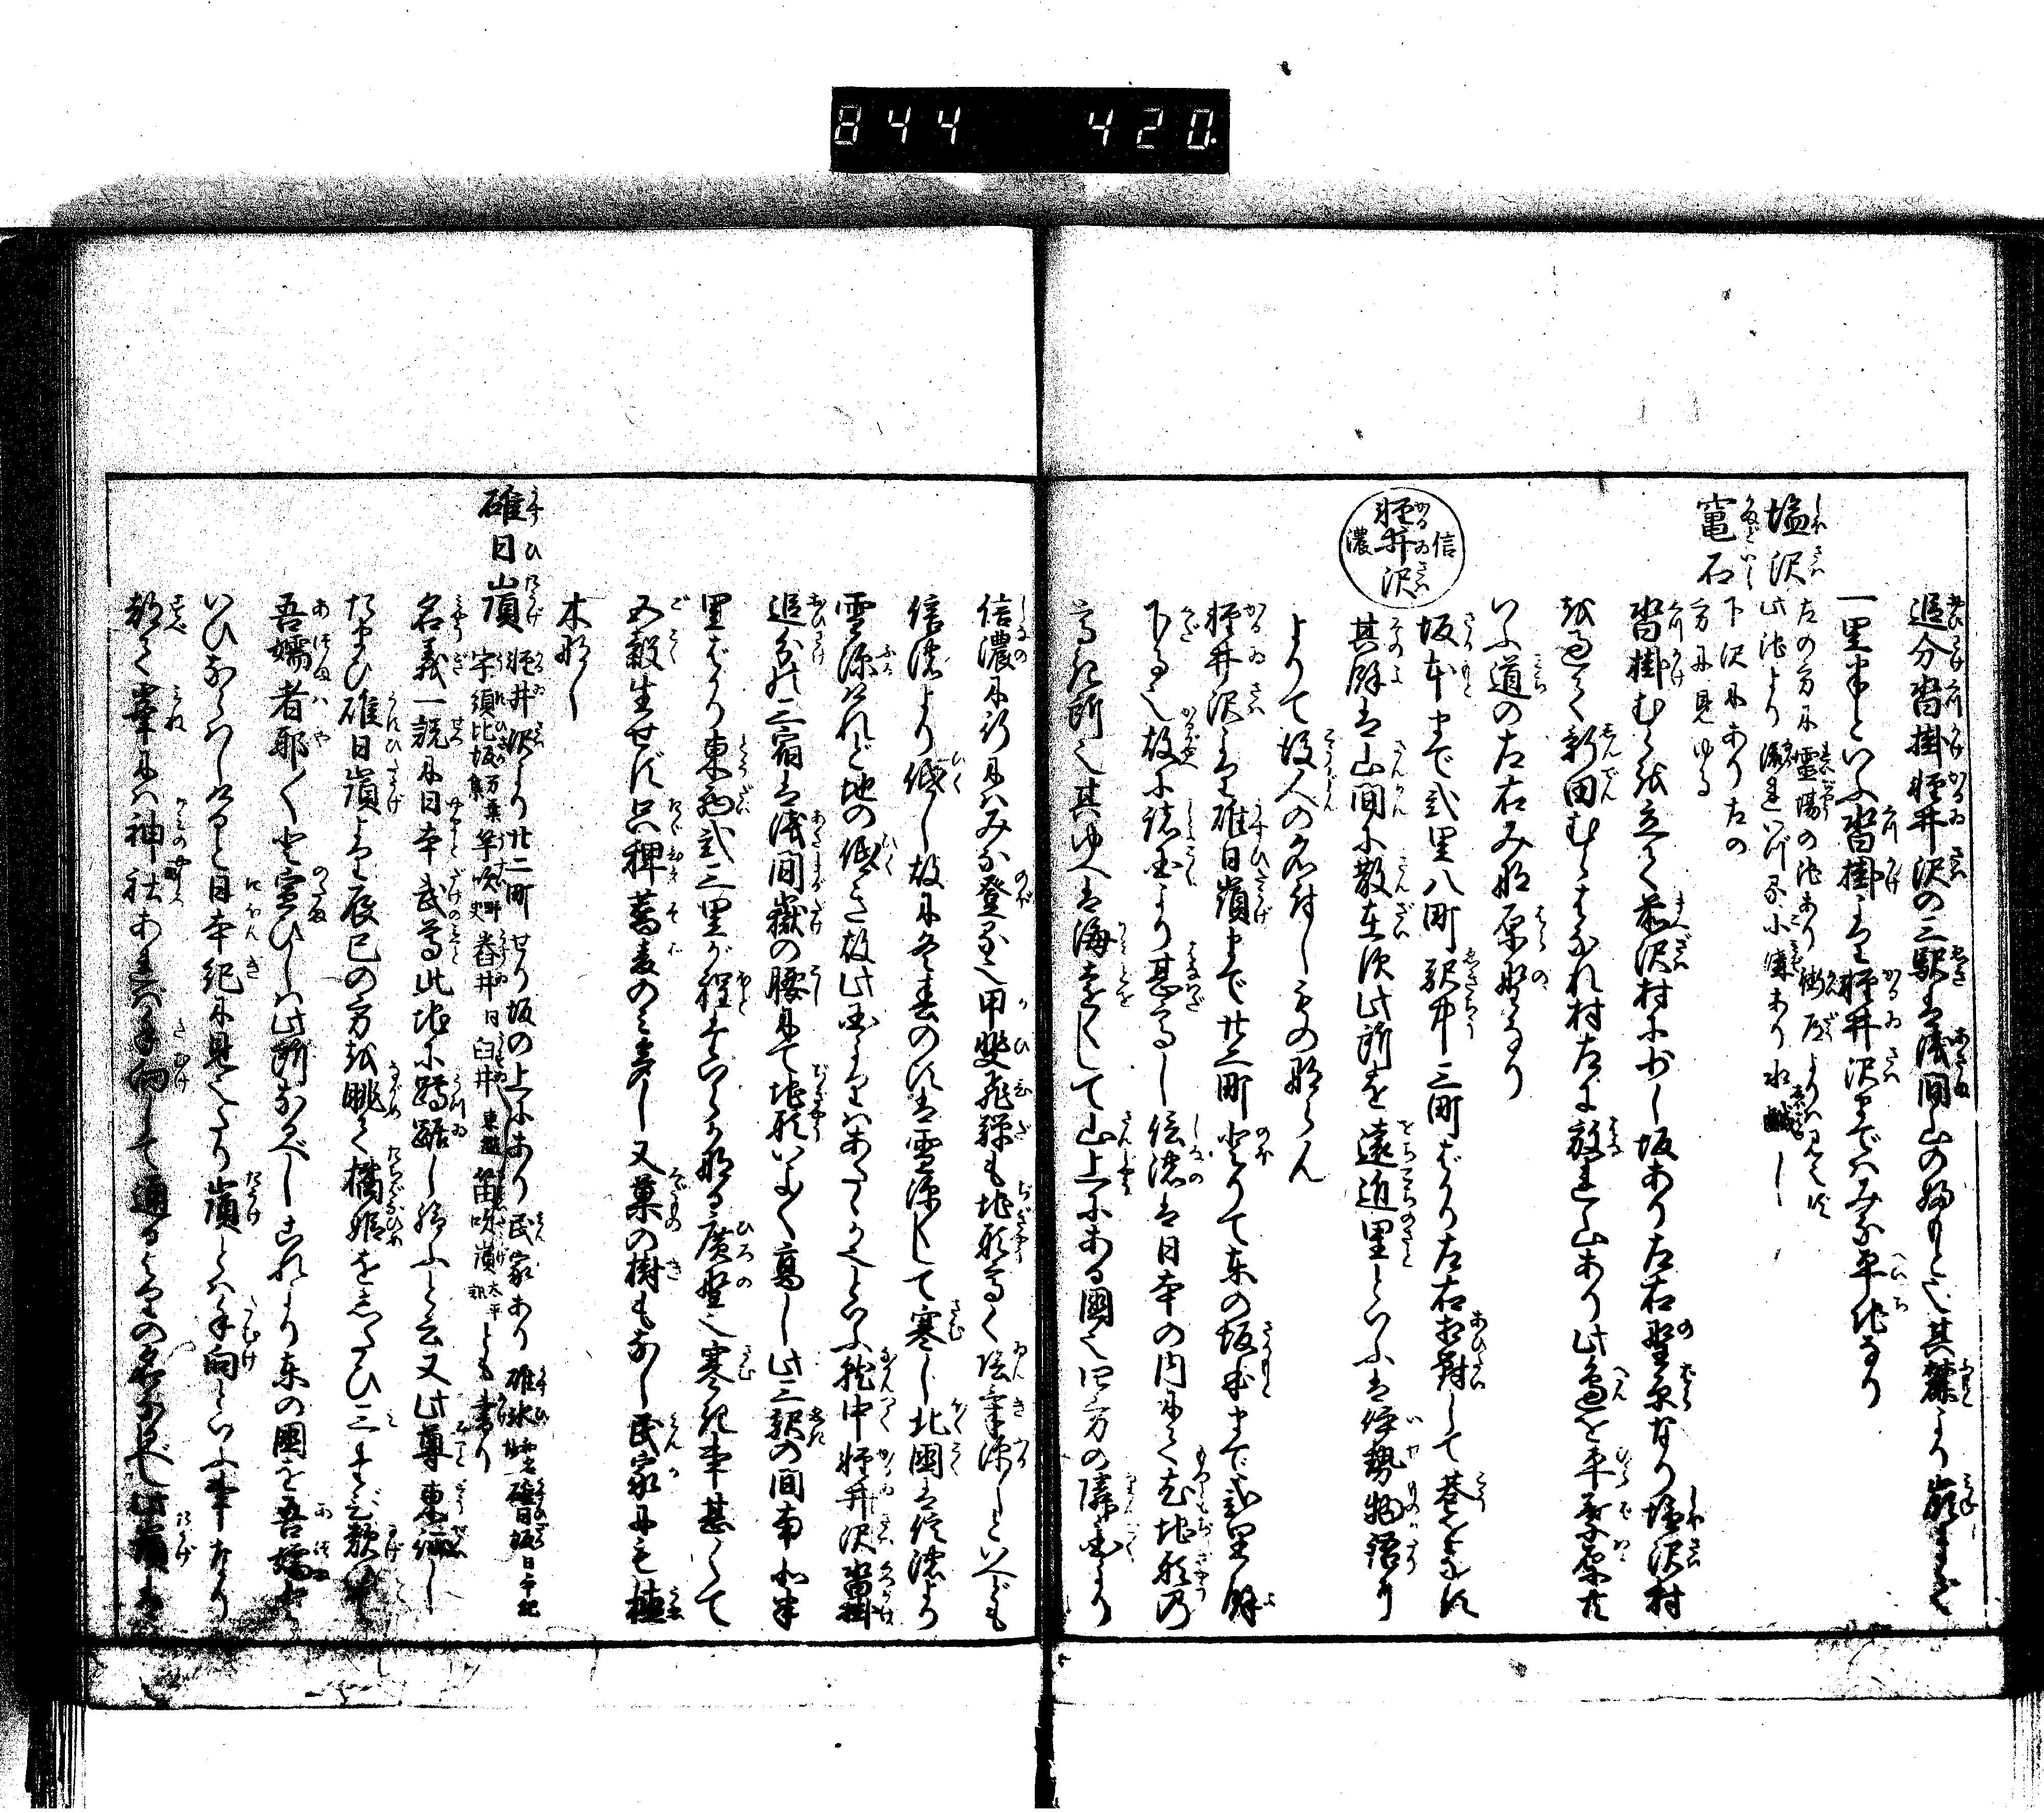 844 420.
追分沓掛軽井沢の三駅は浅間山の婦もと也其麓より嶺まで
一里半といふ沓掛より軽井沢まではみな平地なり
塩沢 左の方に霊陽の池あり街道よりは見えず
此池より流れいづる小溝あり水
竃石 下沢にあり左の
方に見ゆる
沓掛むらを立て前沢村に少し坂あり左右野原なり塩沢村
を過て新田むらはなれ村左に離山あり此辺を平野原共
いふ道の左右みな原野なり
信濃 軽井沢
坂本まで弐里八町駅中三町ばかり左右相対して巷をなす
其餘は山間に散在す此所を遠近里といふは伊勢物語に
よりて好人の名付しものならん
軽井沢より碓日嶺まで廿二町登りて東の坂本まで弐里餘
下る也故に諸国より甚高し信濃は日本の内にて尤地形乃
高き所也其ゆへは海遠くして山上にある国也四方の隣国より
信濃に行にはみな登る也甲斐飛騨も地形高く陰気深しといへども
信濃より低し故に冬春の間は雪深くして寒し北国は信濃より
雪深けれど地の低き故此国よりはあたゝか也といふ就中軽井沢沓掛
追分の三宿は浅間嶽の腰にて地形いよ〳〵高し此三駅の間南北半
里ばかり東西弐三里が程たいらかなる広野也寒き事甚しくて
五穀生ぜず只稗蕎麦のみ多し又菓の樹もなし民家にも植
木なし
碓日嶺 軽井沢より廿二町登り坂の上にあり民家あり 碓氷 和名 碓日坂 日本紀
宇須比坂 万葉集 笛吹野 史 碓井 同 臼井 東鑑 笛吹嶺 太平記 とも書り
名義一説に日本武尊此地に蹲踞し給ふと云又此尊東征し
たまひ碓日嶺より辰巳の方を眺て橘姫をしたひ三たび歎じて
吾嬬者耶〳〵と宣ひしは此所なるべしこれより東の国を吾嬬と
いひならはしけると日本紀に見えたり嶺とは手向といふ事なり
都て峯には神社あれば手向して通るよりの名なるべし此嶺は